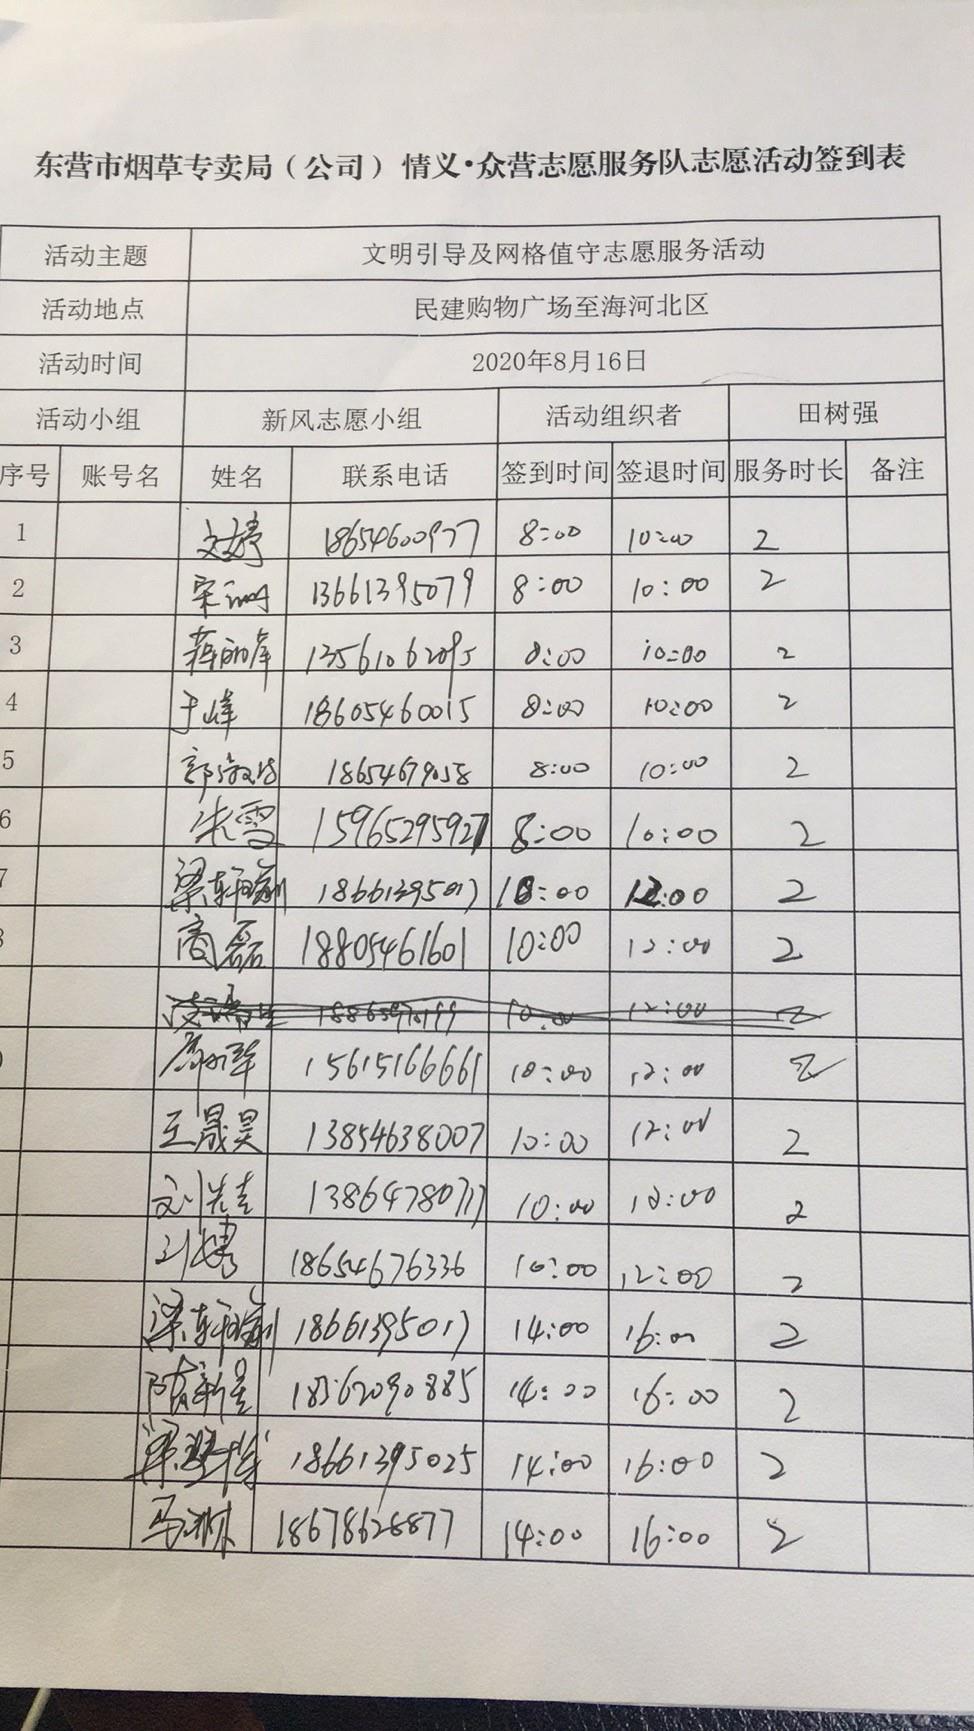 东营市烟草专卖局（公司）情义·众营志愿服务队志愿活动签到表
活动主题 文明引导及网格值守志愿服务活动
活动地点 民建购物广场至海河北区
活动时间 2020年8月16日
活动小组 新风志愿小组 活动组织者 田树强
序号 账号名 姓名 联系电话 签到时间 签退时间 服务时长 备注
1 文婷 18654600977 8:00 10:00 2
2 13661395079 8:00 10:00 2
3 13561062095 8:00 10:00 2
4 于峰 18605460015 8:00 10:00 2
5 18654679058 8:00 10:00 2
6 朱雪 15965295927 8:00 10:00 2
7 18661395017 10:00 12:00 2
商磊 18805461601 10:00 12:00 2
10:00 12:00 2
15615166661 10:00 12:00 2
王晟昊 13854638007 10:00 12:00 2
刘先吉 13864780717 10:00 2
18654676336 10:00 12:00 2
18661395017 14:00 16:00 2
隋新星 18562090885 14:00 16:00 2
18661395025 14:00 16:00 2
马琳 18678628877 14:00 16:00 2